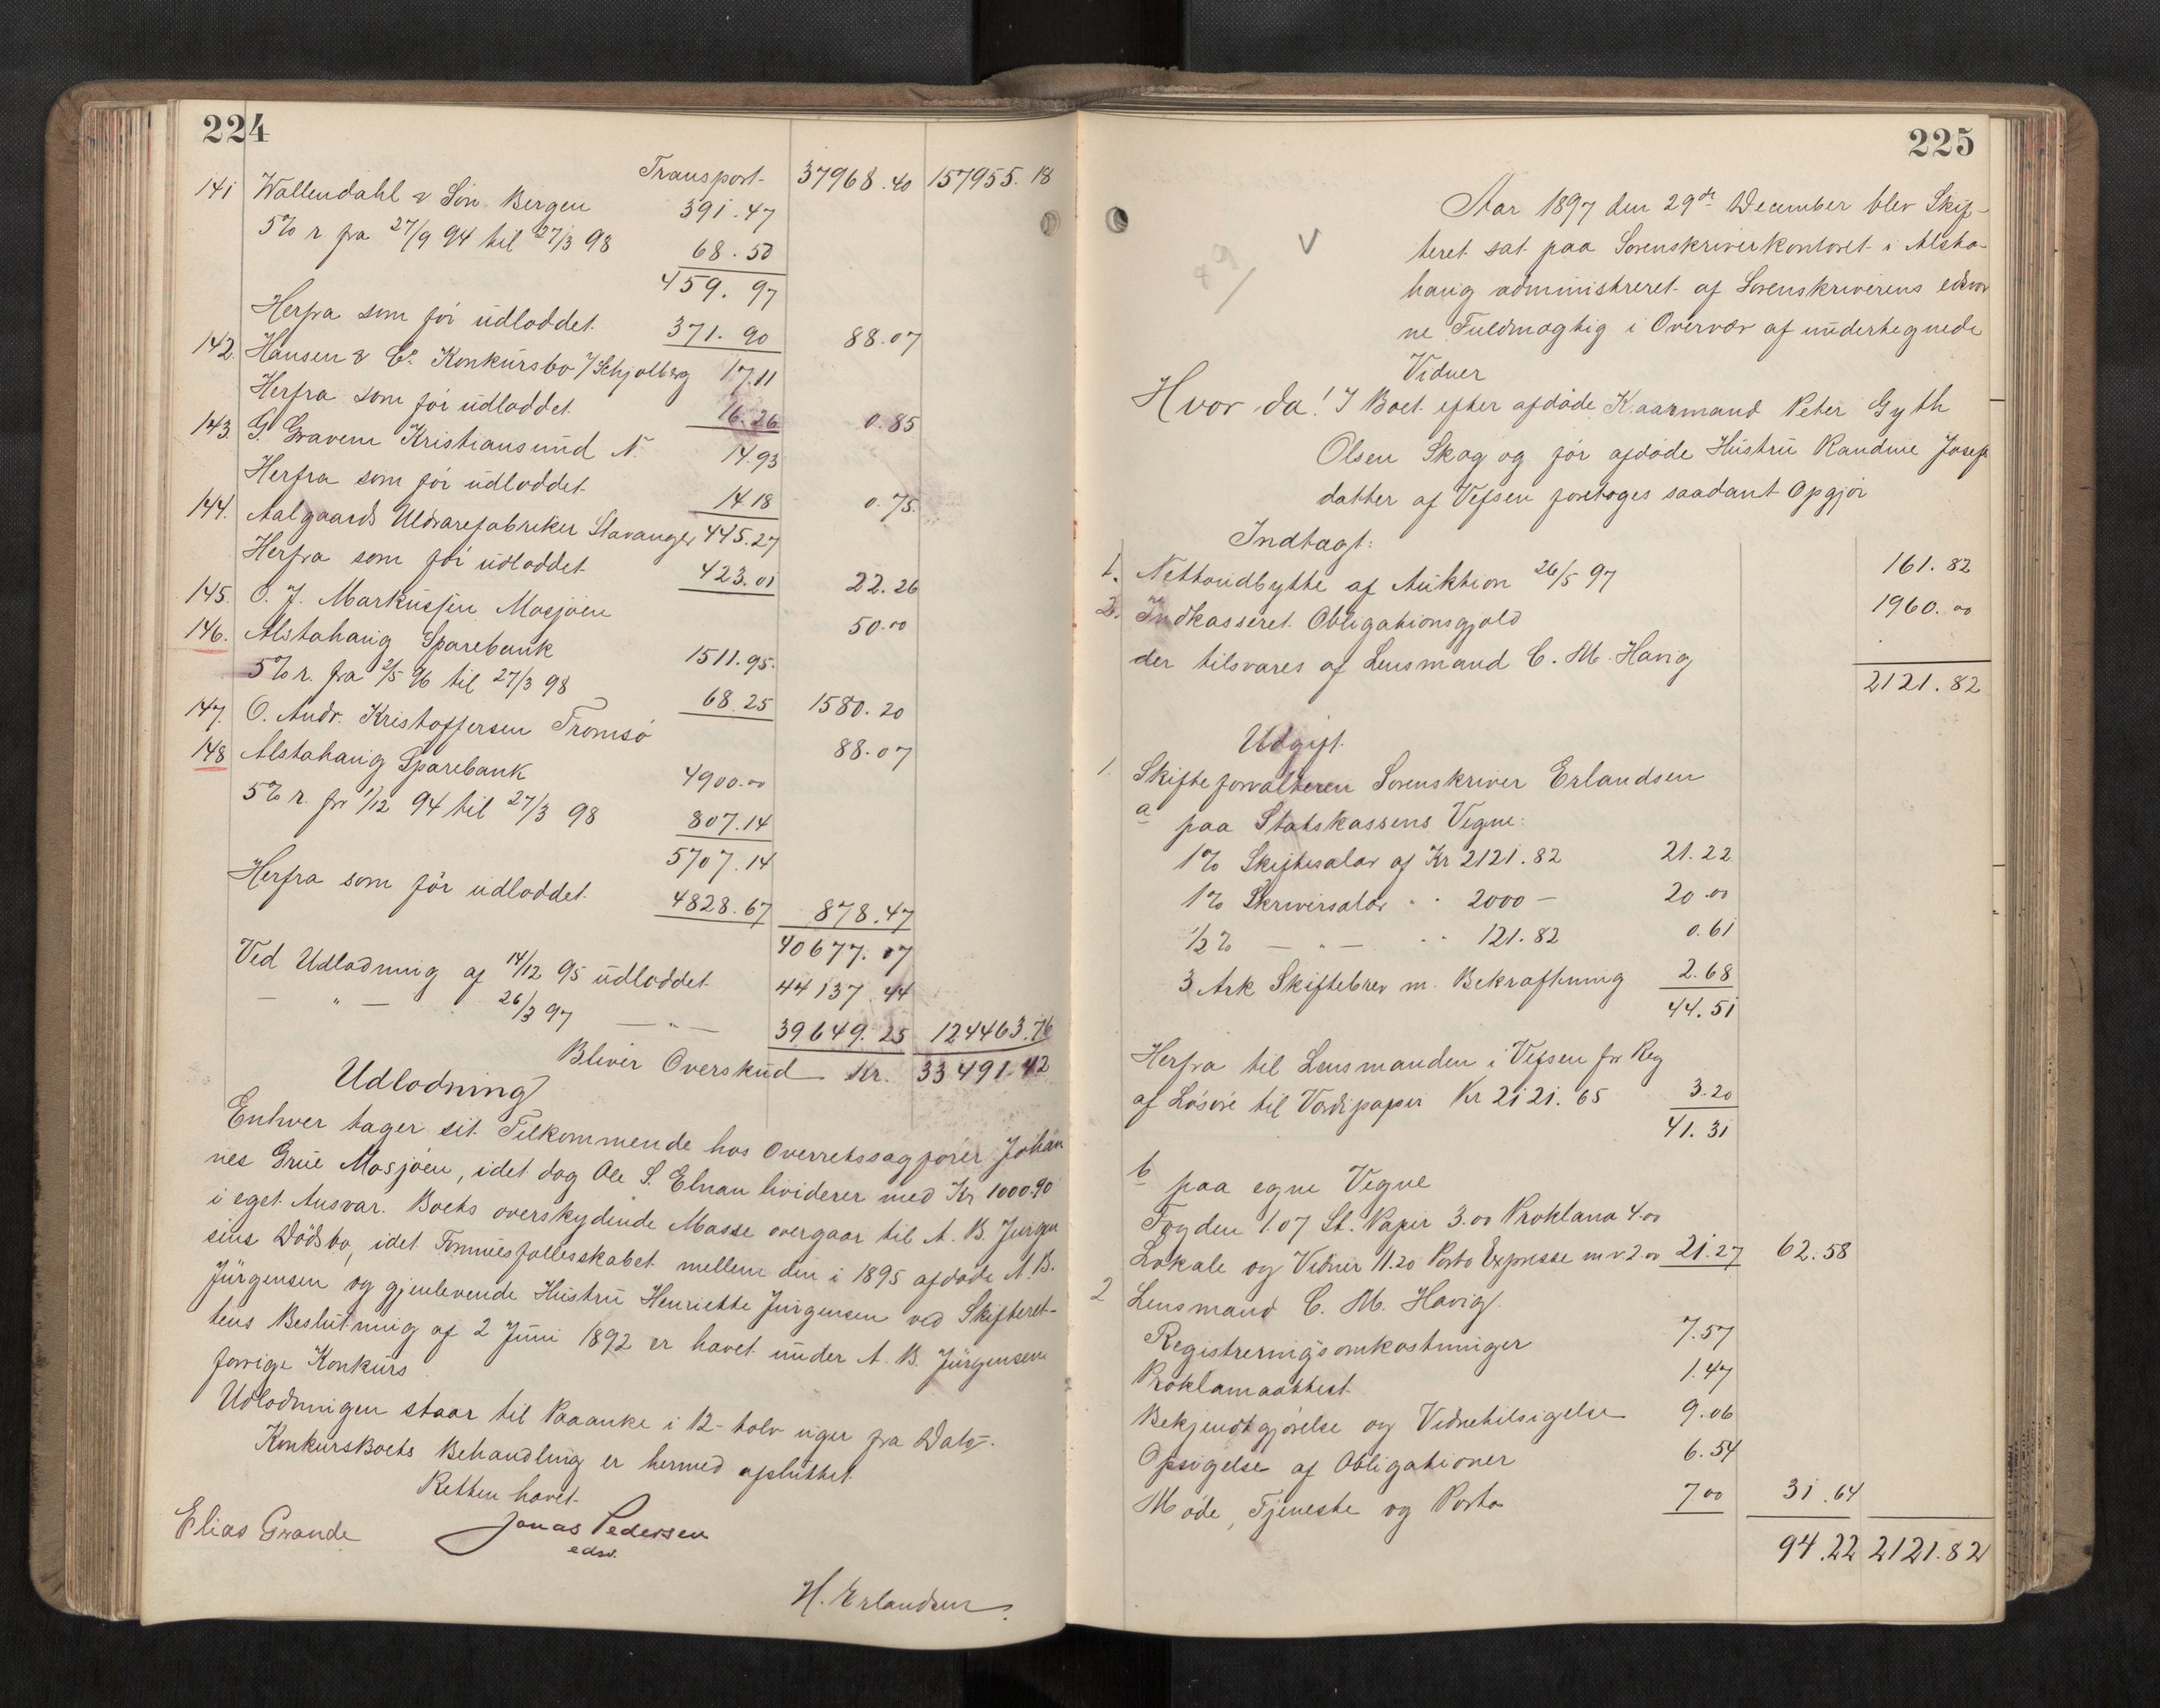 224
Transport 37968.40 157955.18
141 Wallendahl & Søn Bergen 391.47
5% r fra 27/9 94 til 27/3 98 68.50
459.97
Herfra som før udloddet 371.90 88.07
142. Hansen & Co. Konkursbo v/ Schjølberg 17.11
Herfra som før udloddet 16.26 0.85
143. G. Gravem Kristiansund N. 14.93
Herfra som før udloddet 14.18 0.75
144. Aalgaards Uldvarefabriker Stavanger 445.27
Herfra som før udloddet 423.01 22.26
145. O. J. Markussen Mosjøen 50.00
146. Alstahaug Sparebank 1511.95
5% r. fra 2/5 96 til 27/3 98 68.25 1580.20
147. O. Andr. Kristoffersen Tromsø 88.07
148 Alstahaug Sparebank 4900.00
5% r. fr 1/12 94 til 27/3 98 807.14
5707.14
Herfra som før udloddet 4828.67 878.47
40677.07
Ved Udlodning af 14/12 95 udloddet 44137.44
— " — 26/3 97 — " — 39649.25 124463.76
Bliver Overskud Kr. 33491.42
Udlodning
Enhver tager sit Tilkommende hos Overretssagfører Johan
nes Grue Mosjøen, idet dog Ole S. Elnan lividerer med Kr 1000.90
i eget Ansvar. Boets overskydende Masse overgaar til A. B. Jürgen
sens Dødsbo, idet Formuesfællesskabet mellem den i 1895 afdøde A. B.
Jürgensen og gjenlevende Hustru Henriette Jürgensen ved Skifteret-
tens Beslutning af 2 Juni 1892 er hævet under A. B. Jürgensens
forrige Konkurs
Udlodningen staar til Paaanke i 12- tolv uger fra Dato.
KonkursBoets Behandling er hermed afsluttet
Retten hævet
Elias Grande Jonas Pedersen
edsv.
H. Erlandsen
225
Aar 1897 den 29de December blev Skif-
teret sat paa Sorenskriverkontoret i Alsta-
haug administreret af Sorenskriverens edsvor
ne Fuldmægtig i Overvær af undertegnede
Vidner
Hvor da! I Boet efter afdøde Kaarmand Peter Gyth
Olsen Skog og før afdøde Hustru Randine Josef
datter af Vefsen foretoges saadant Opgjør
Indtægt:
1. Nettoudbytte af Auktion 26/5 97 161.82
2. Indkasseret Obligationsgjæld 1960.00
der tilsvares af Lensmand C. M. Havig
2121.82
Udgift
1. Skifteforvalteren Sorenskriver Erlandsen
a paa Statskassens Vegne:
1% Skiftesalær af Kr 2121.82 21.22
1% Skriversalær " " 2000 — 20.00
1/2 % — " — " " 121.82 0.61
3 Ark Skiftebrev m. Bekræftning 2.68
44.51
Herfra til Lensmanden i Vefsen for Reg
af Løsøre til Værdipapir Kr 2121.65 3.20
41.31
b paa egne Vegne
Fogden 1.07 St. Papir 3.00 Proklama 4.00
Lokale og Vidner 11.20 Porto Expresse m v 2.00 21.27 62.58
2 Lensmand C. M. Havig.
Registreringsomkostninger 7.57
Proklamaattest 1.47
Bekjendtgjørelse og Vidnetilsigelse 9.06
Opsigelse af Obligationer 6.54
Møde, Tjeneste og Porto 7.00 31.64
94.22 2121.82